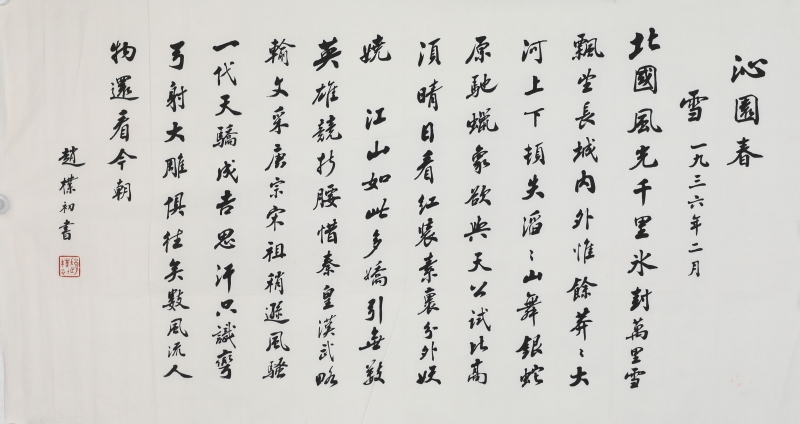 沁園春
雪 一九三六年二月
北國風光千里氷封萬里雪
飄望長城内外惟餘莽〻大
河上下頓失滔〻山舞銀蛇
原馳蠟象欲與天公試比髙
須晴日看紅裝素裹分外妖
嬈 江山如此多嬌引無數
英雄競折腰惜秦皇漢武略
輸文采唐宗宋祖稍遜風騷
一代天驕成吉思汗只識彎
弓射大雕俱往矣數風流人
物還看今朝
趙樸初書